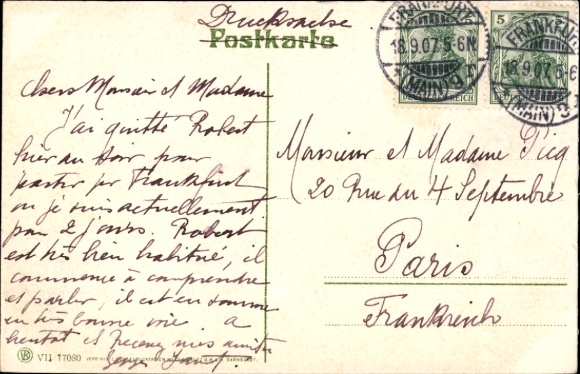 Drucksache
Postkarte
FRANKFURT
18.9.07.5-6N
(MAIN) 9
DEUTSCHES REICH
5
FRANKFURT
18.9.07.5-6
(MAIN) 9
Chers Monsieur et Madame
J'ai quitté Robert
hier au soir pour
partir pr Frankfurt
où je suis actuellement
pour 2 jours. Robert
est très bien habitué, il
commence à comprendre
et parler, il est en somme
en très bonne voie. A
bientot et recevez mes amitiés
Monsieur et Madame Picq
20 Rue du 4 Septembre
Paris
Frankreich
VII 17060